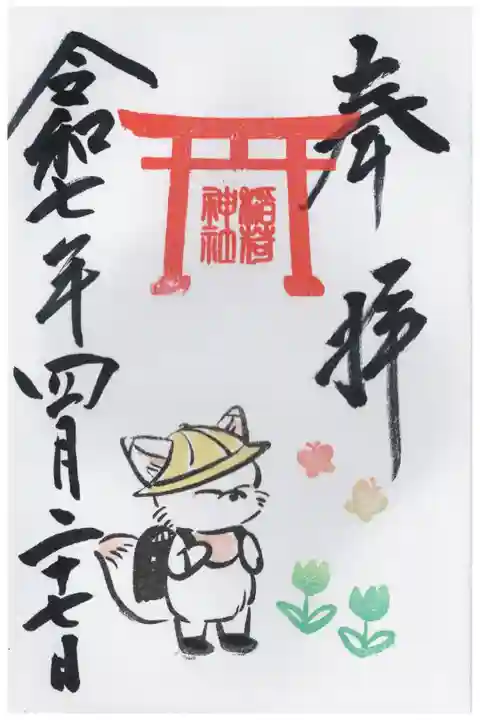 奉拝
稲荷
神社
令和七年四月二十七日